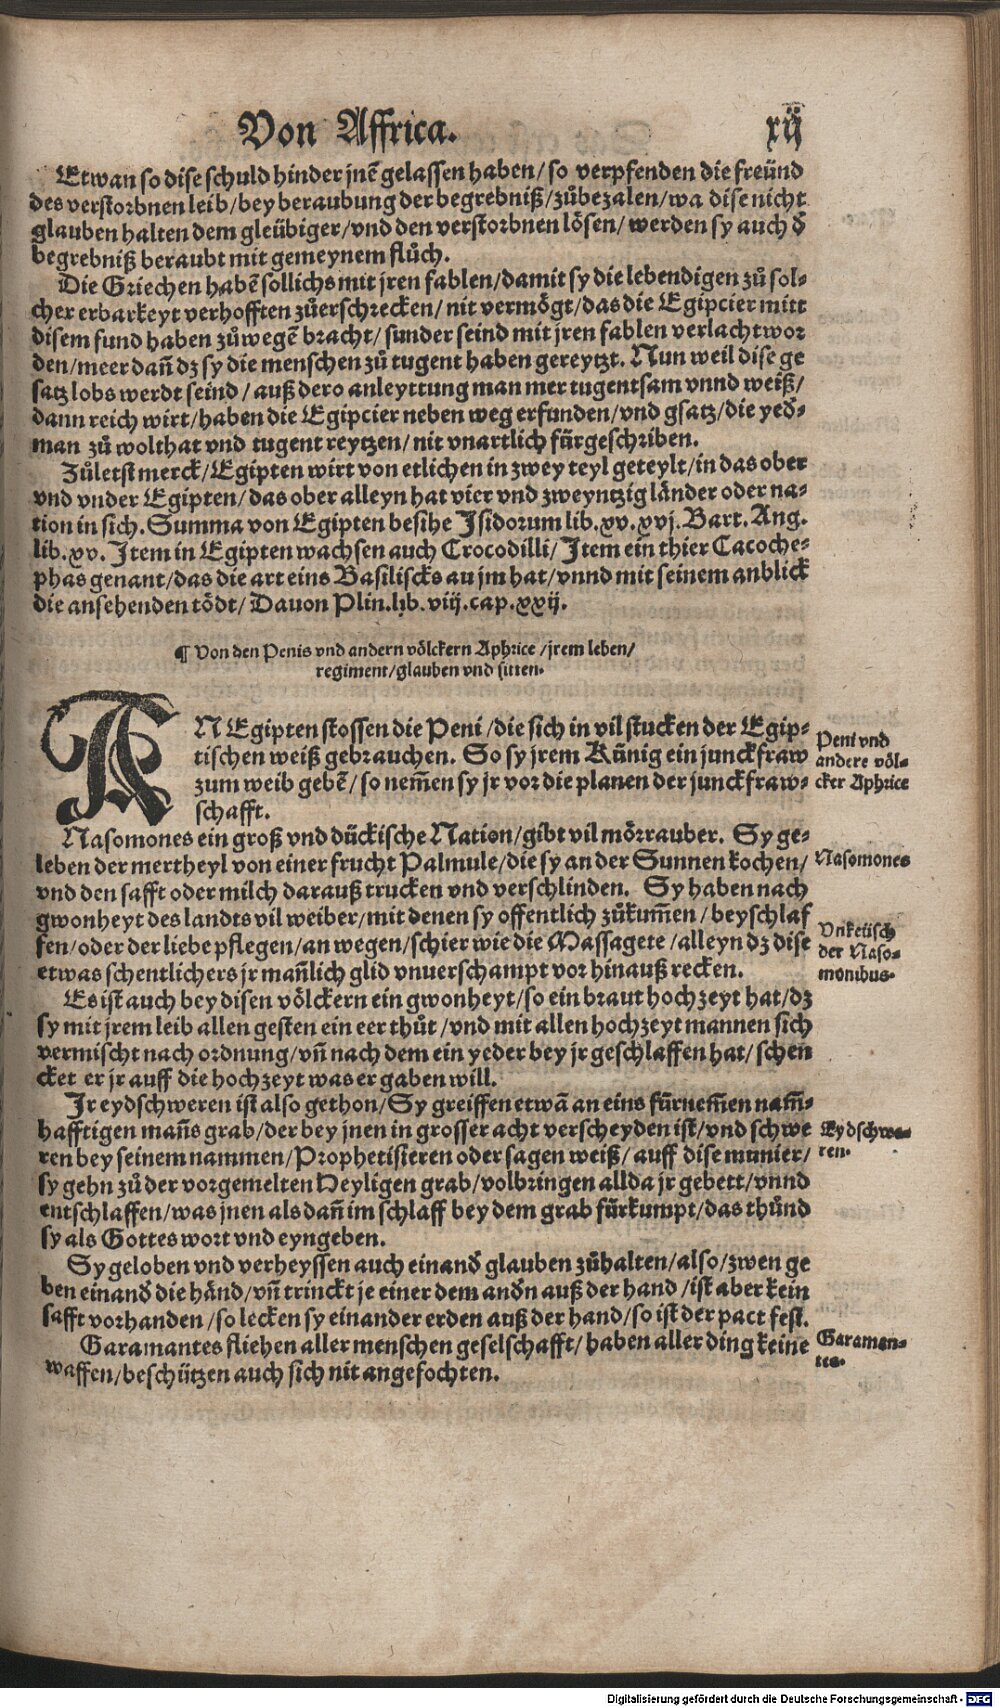 Von Affrica. xij
Etwan so dise schuld hinder jnē gelassen haben/ so verpfenden die freünd
des verstorbnen leib/ bey beraubung der begrebniß/ zůbezalen/ wa dise nicht
glauben halten dem gleübiger/ vnd den verstorbnen lösen/ werden sy auch d̄
begrebniß beraubt mit gemeynem flůch.
Die Griechen habē sollichs mit jren fablen/ damit sy die lebendigen zů sol⸗
cher erbarkeyt verhofften zůerschrecken/ nit vermögt/ das die Egipcier mitt
disem fund haben zůwegē bracht/ sunder seind mit jren fablen verlacht wor
den/ meer dañ dz sy die menschen zů tugent haben gereytzt. Nun weil dise ge
satz lobs werdt seind/ auß dero anleyttung man mer tugentsam vnnd weiß/
dann reich wirt/ haben die Egipcier neben weg erfunden/ vnd gsatz/ die yed̄⸗
man zů wolthat vnd tugent reytzen/ nit vnartlich fürgeschriben.
Zůletst merck/ Egipten wirt von etlichen in zwey teyl geteylt/ in das ober
vnd vnder Egipten/ das ober alleyn hat vier vnd zweyntzig länder oder na⸗
tion in sich. Summa von Egipten besihe Isidorum lib.xv.xvj. Bart. Ang.
lib.xv. Item in Egipten wachsen auch Crocodilli/ Item ein thier Cacoche⸗
phas genant/ das die art eins Basiliscks an jm hat/ vnnd mit seinem anblick
die ansehenden tödt/ Dauon Plin.lib.viij.cap.xxij.
¶ Von den Penis vnd andern völckern Aphrice/ jrem leben/
regiment/ glauben vnd sitten.
AN Egipten stossen die Peni/ die sich in vil stucken der Egip⸗
tischen weiß gebrauchen. So sy jrem Künig ein junckfraw
zum weib gebē/ so nem̄en sy jr vor die planen der junckfraw⸗
schafft.
Peni vnd
andere völ⸗
cker Aphrice
Nasomones ein groß vnd dückische Nation/ gibt vil mörrauber. Sy ge⸗
leben der mertheyl von einer frucht Palmule/ die sy an der Sunnen kochen/
vnd den safft oder milch darauß trucken vnd verschlinden. Sy haben nach
gwonheyt des landts vil weiber/ mit denen sy offentlich zůkum̄en/ beyschlaf
fen/ oder der liebe pflegen/ an wegen/ schier wie die Massagete/ alleyn dz dise
etwas schentlichers jr mañlich glid vnuerschampt vor hinauß recken.
Nasomones
Vnkeüsch
der Naso⸗
monibus.
Es ist auch bey disen völckern ein gwonheyt/ so ein braut hochzeyt hat/ dz
sy mit jrem leib allen gesten ein eer thůt/ vnd mit allen hochzeyt mannen sich
vermischt nach ordnung/ vñ nach dem ein yeder bey jr geschlaffen hat/ schen
cket er jr auff die hochzeyt was er gaben will.
Ir eydschweren ist also gethon/ Sy greiffen etwā an eins fürnem̄en nam̄⸗
hafftigen mañs grab/ der bey jnen in grosser acht verscheyden ist/ vnd schwe
ren bey seinem nammen/ Prophetisieren oder sagen weiß/ auff dise munier/
sy gehn zů der vorgemelten Heyligen grab/ volbringen allda jr gebett/ vnnd
entschlaffen/ was jnen als dañ im schlaff bey dem grab fürkumpt/ das thůnd
sy als Gottes wort vnd eyngeben.
Eydschwe⸗
ren.
Sy geloben vnd verheyssen auch einand̄ glauben zůhalten/ also/ zwen ge
ben einand̄ die händ/ vñ trinckt je einer dem and̄n auß der hand/ ist aber kein
safft vorhanden/ so lecken sy einander erden auß der hand/ so ist der pact fest.
Garamantes fliehen aller menschen geselschafft/ haben aller ding keine
waffen/ beschützen auch sich nit angefochten.
Garaman⸗
tes.
Digitalisierung gefördert durch die Deutsche Forschungsgemeinschaft - DFG